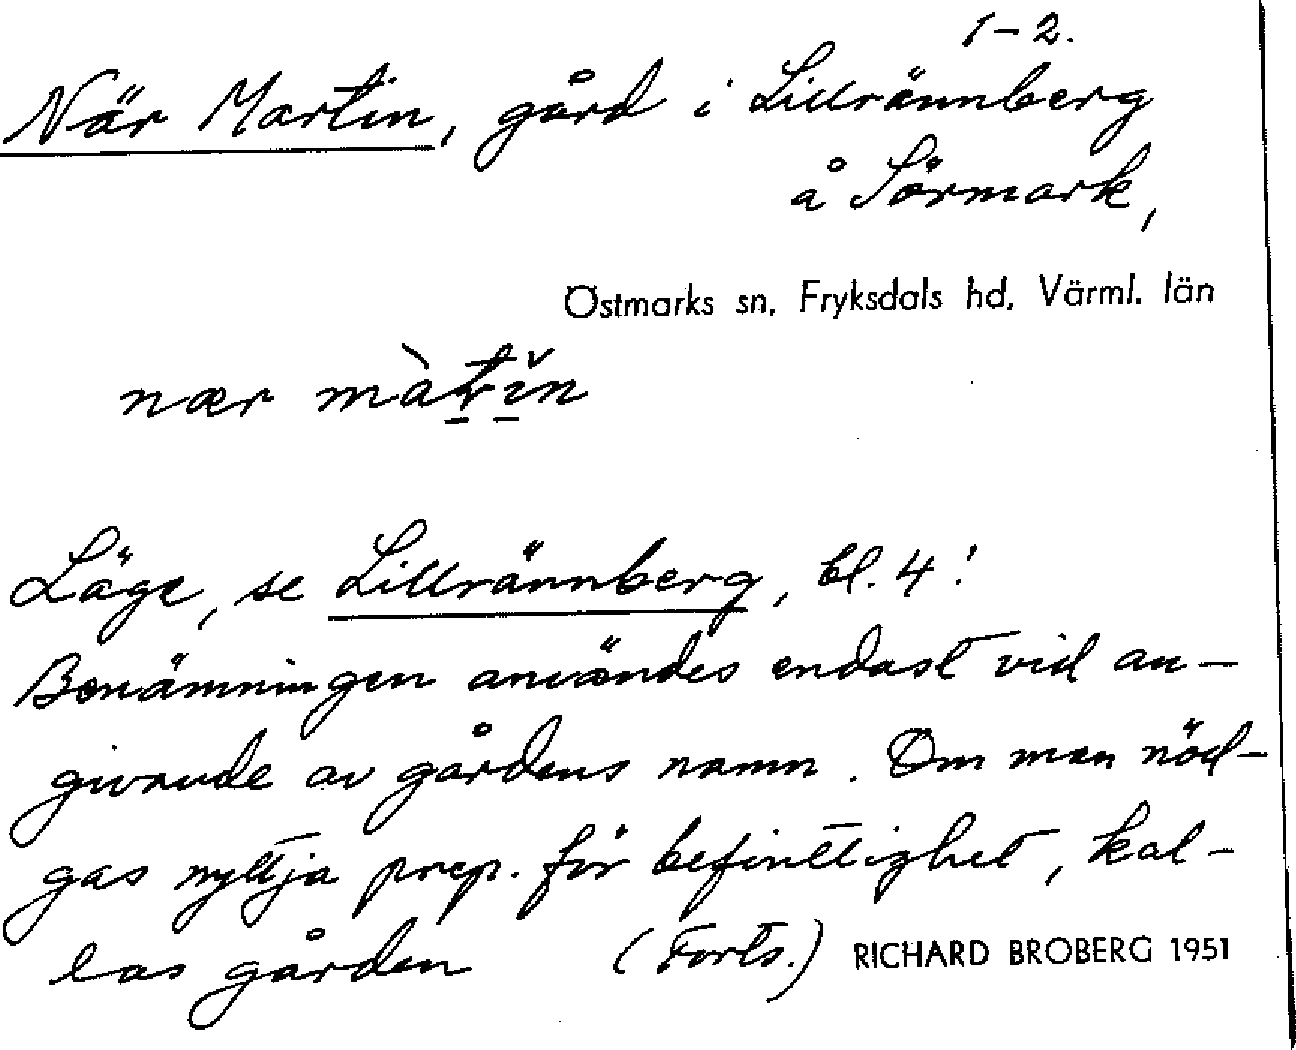 1-2.
När Martin, gård i Lillrännberg
å Sörmark,
Östmarks sn, Fryksdals hd, Värml. län
nær màtĭn
Läge, se Lillrännberg, bl. 4!
Benämningen användes endast vid an-
givande av gårdens namn. Om man nöd-
gas nyttja prep. för befintlighet, kal-
las gården (Forts.) RICHARD BROBERG 1951